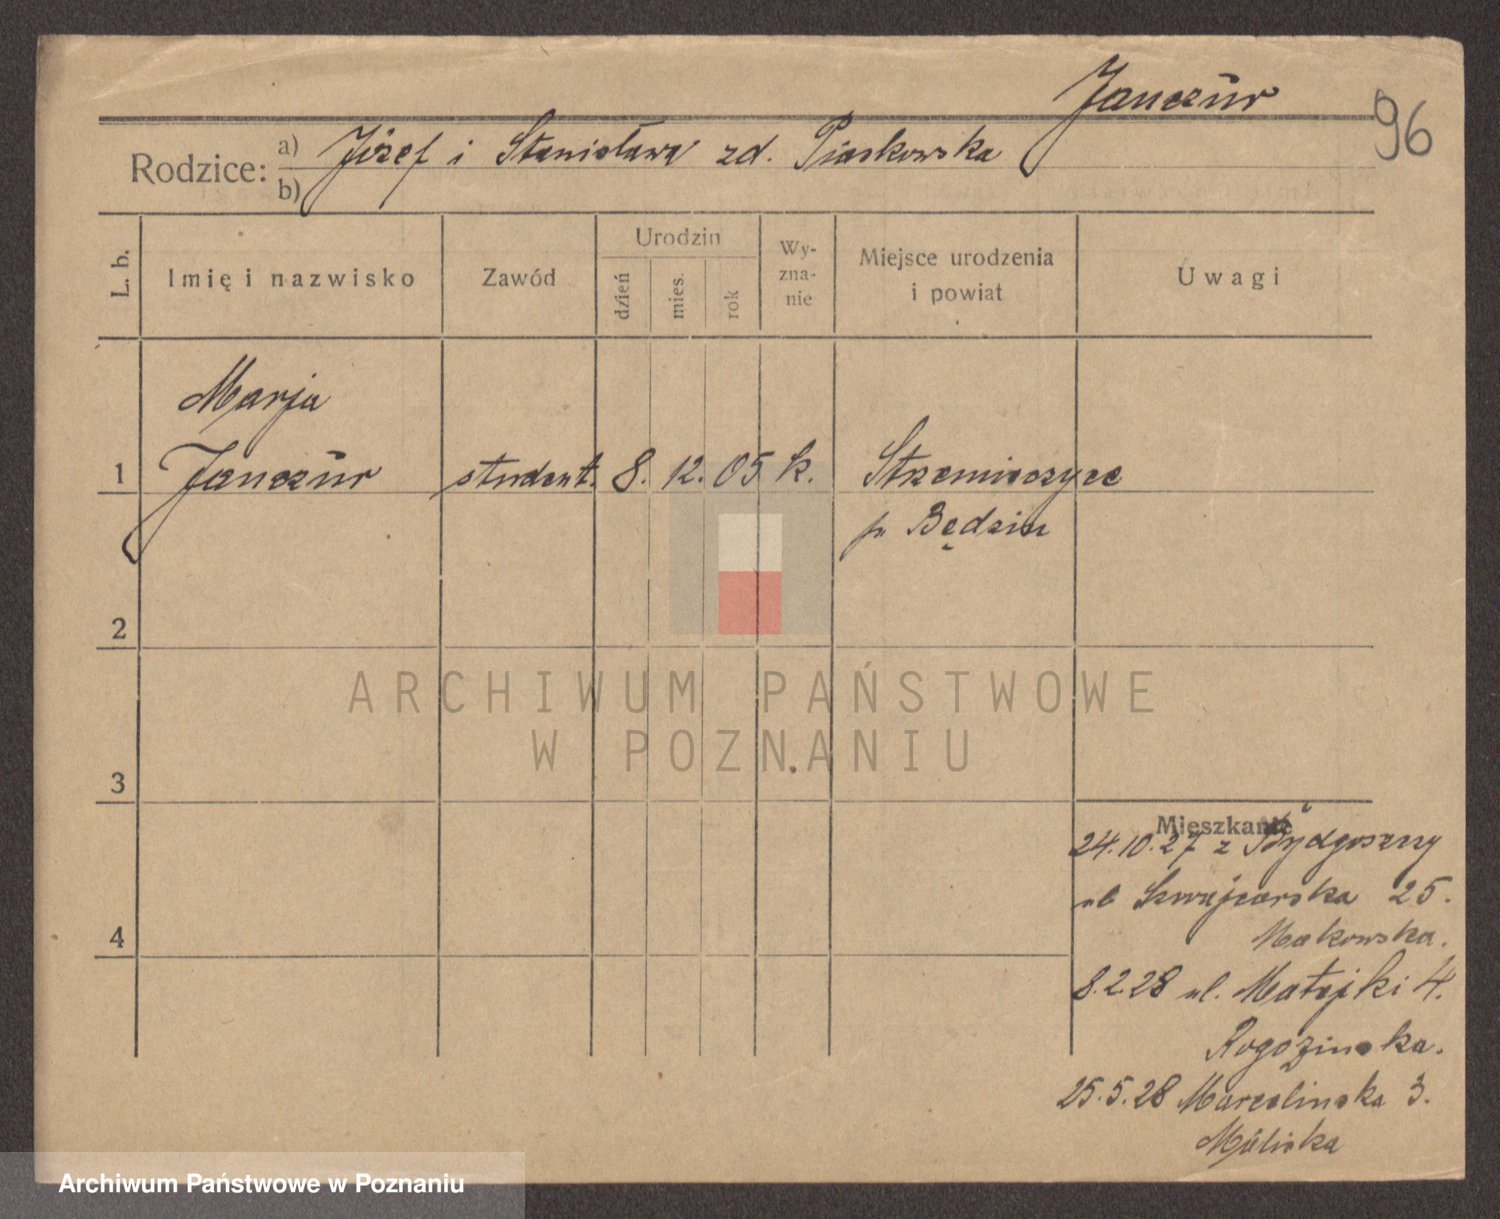 Janczur
96
Rodzice: a) Józef i Stanisława zd. Piaskowska
b)
L. b.
Imię i nazwisko
Zawód
Urodzin
dzień
mies.
rok
Wy-
zna-
nie
Miejsce urodzenia
i powiat
Uwagi
Marja
1 Janczur student. 8. 12. 05 k. Strzemieszyce
p Będzin
2
3
4
ARCHIWUM PAŃSTWOWE
W POZNANIU
Mieszkanie
24.10.27 z Bydgoszczy
ul Szwajcarska 25.
Makowska.
8.2.28 ul. Matejki 4.
Rogozinska.
25.5.28 Marcelinska 3.
Archiwum Państwowe w Poznaniu